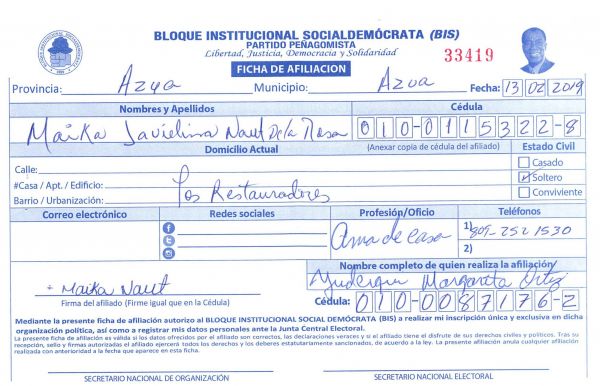 BLOQUE INSTITUCIONAL SOCIALDEMÓCRATA (BIS)
PARTIDO PEÑAGOMISTA
Libertad, Justicia, Democracia y Solidaridad
33419
FICHA DE AFILIACION
Provincia: Azua Municipio: Azua Fecha: 13 02 2019
Nombres y Apellidos Cédula
Maika Javielina Naut De la Rosa 010-0115322-8
Domicilio Actual (Anexar copia de cédula del afiliado) Estado Civil
Calle: Casado
#Casa / Apt. / Edificio: Los Restauradores Soltero
Barrio / Urbanización: Conviviente
Correo electrónico Redes sociales Profesión/Oficio Teléfonos
Ama de casa 1) 809-252 1530
2)
Nombre completo de quien realiza la afiliación
Maika Naut Margarita Ortiz
Firma del afiliado (Firme igual que en la Cédula) Cédula: 010-0087176-2
Mediante la presente ficha de afiliación autorizo al BLOQUE INSTITUCIONAL SOCIAL DEMÓCRATA (BIS) a realizar mi inscripción única y exclusiva en dicha
organización política, así como a registrar mis datos personales ante la Junta Central Electoral.
La presente ficha de afiliación es válida si los datos ofrecidos por el afiliado son correctas, las declaraciones veraces y si el afiliado tiene el disfrute de sus derechos civiles y políticos. Tras su
recepción, sello y firmas autorizadas el afiliado ejercerá todos los derechos y los deberes estatutariamente sancionados, de acuerdo a la ley. La presente afiliación anula cualquier afiliación
realizada con anterioridad a la fecha que aparece en esta ficha.
SECRETARIO NACIONAL DE ORGANIZACIÓN SECRETARIO NACIONAL ELECTORAL